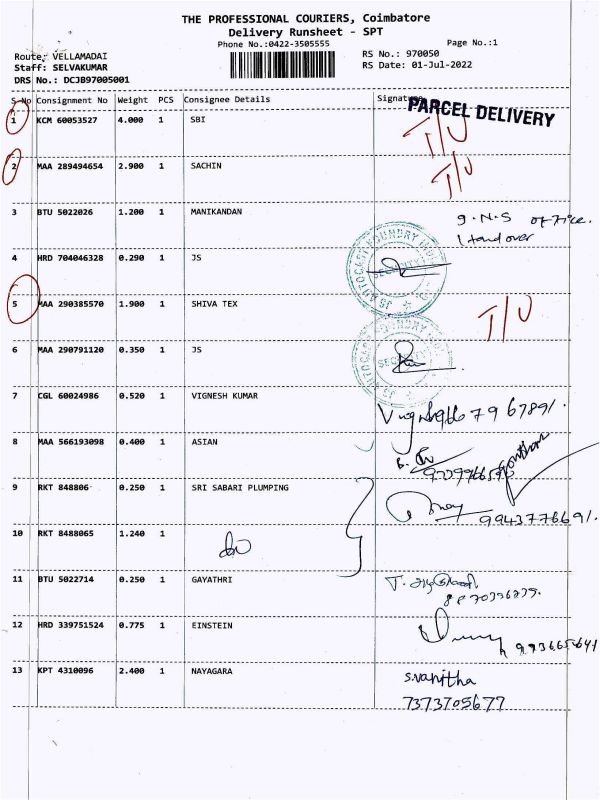 THE PROFESSIONAL COURIERS, Coimbatore
Delivery Runsheet - SPT
Phone No.:0422-3505555
Page No.:1
Route: VELLAMADAI
RS No.: 970050
Staff: SELVAKUMAR
RS Date: 01-Jul-2022
DRS No.: DCJB97005001
S No Consignment No Weight PCS Consignee Details Signature
PARCEL DELIVERY
1 KCM 60053527 4.000 1 SBI T/U
2 MAA 289494654 2.900 1 SACHIN T/U
3 BTU 5022026 1.200 1 MANIKANDAN g.N.S office.
Handover
4 HRD 704046328 0.290 1 JS
JS AUTOCAST FOUNDRY
SECURITY
5 MAA 290385570 1.900 1 SHIVA TEX T/U
6 MAA 290791120 0.350 1 JS
JS AUTOCAST FOUNDRY
7 CGL 60024986 0.520 1 VIGNESH KUMAR
8 MAA 566193098 0.400 1 ASIAN
9 RKT 848806 0.250 1 SRI SABARI PLUMPING
9943776691.
10 RKT 8488065 1.240 1
11 BTU 5022714 0.250 1 GAYATHRI
12 HRD 339751524 0.775 1 EINSTEIN
13 KPT 4310096 2.400 1 NAYAGARA S.vanitha
7373705677